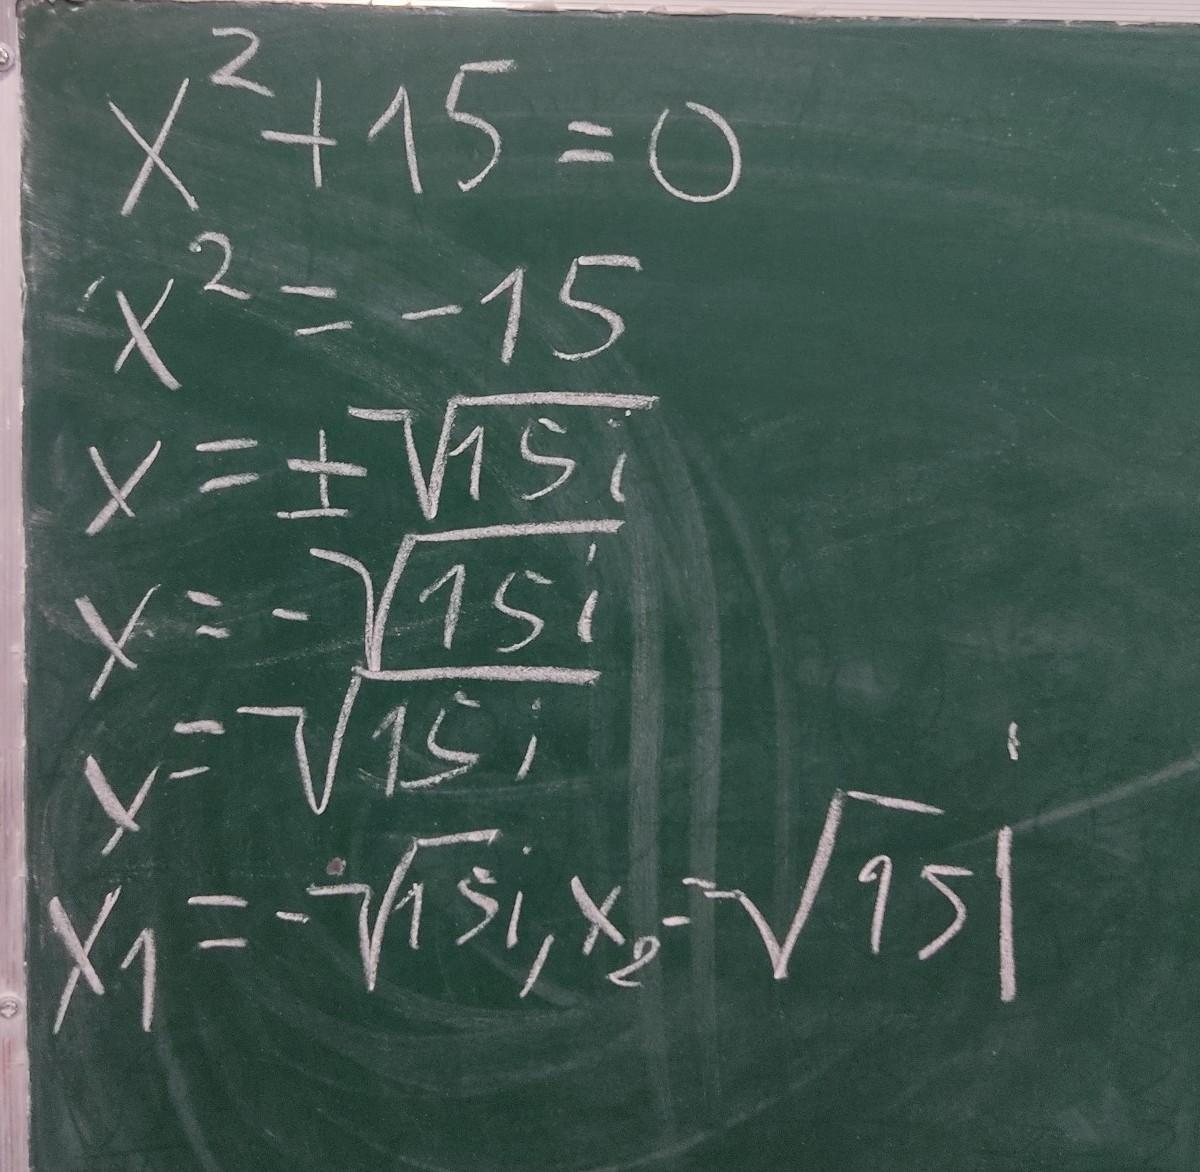 x² + 15 = 0
x² = -15
x = ±√15i
x = -√15i
x = √15i
x₁ = -√15i, x₂ = √15i